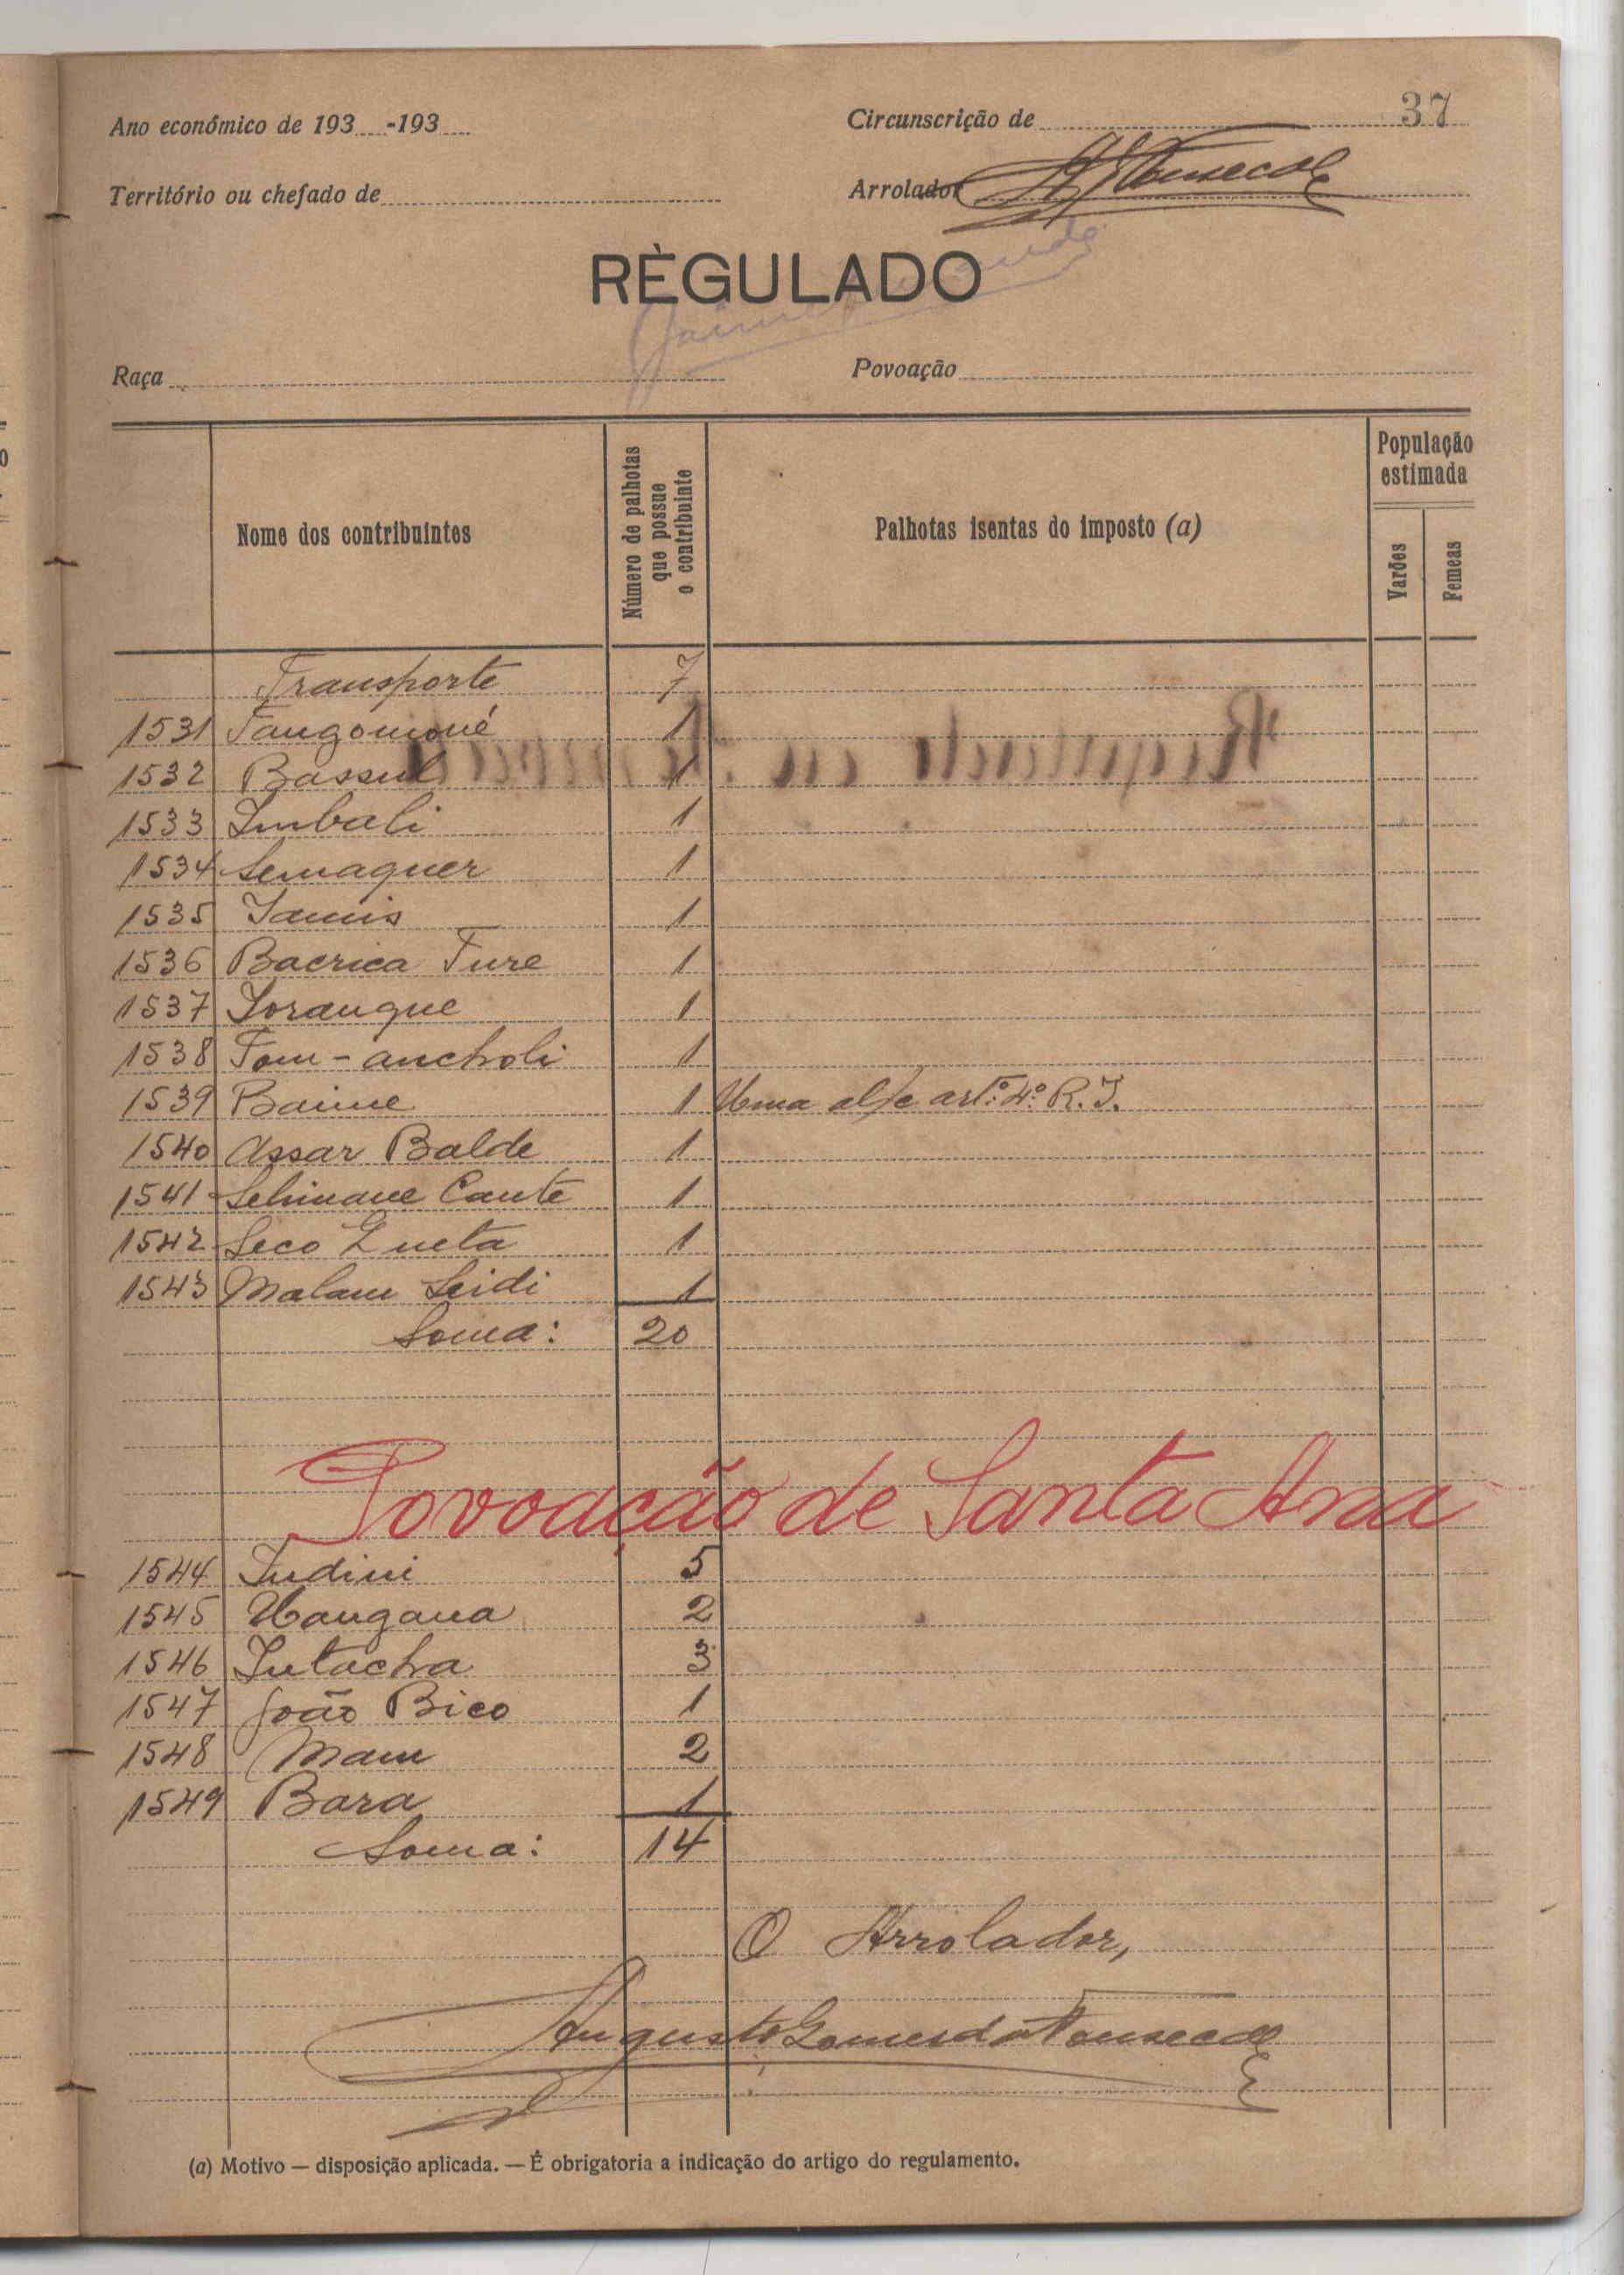 37
Ano económico de 193 -193
Circunscrição de
Território ou chefado de
Arrolador
RÈGULADO
Raça
Povoação
Nome dos contribuintes
Número de palhotas que possue o contribuinte
Palhotas isentas do imposto (a)
População estimada
Varões
Femeas
Transporte 7
1531 Tangomoné 1
1532 Bassul 1
1533 Imbali 1
1534 Semaquer 1
1535 Iamis 1
1536 Bacrica Ture 1
1537 Iorangue 1
1538 Tom-ancholi 1
1539 Baime 1 Uma al/c artº: 4º R.I.
1540 Assar Balde 1
1541 Sehinane Cante 1
1542 Seco Queta 1
1543 Malam Seidi 1
Soma: 20
Povoação de Santa Ana
1544 Indini 5
1545 Ubangana 2
1546 Intacha 3
1547 João Bico 1
1548 Mam 2
1549 Bara 1
Soma: 14
O Arrolador,
Augusto Gomes da Fonseca
(a) Motivo — disposição aplicada. — É obrigatoria a indicação do artigo do regulamento.